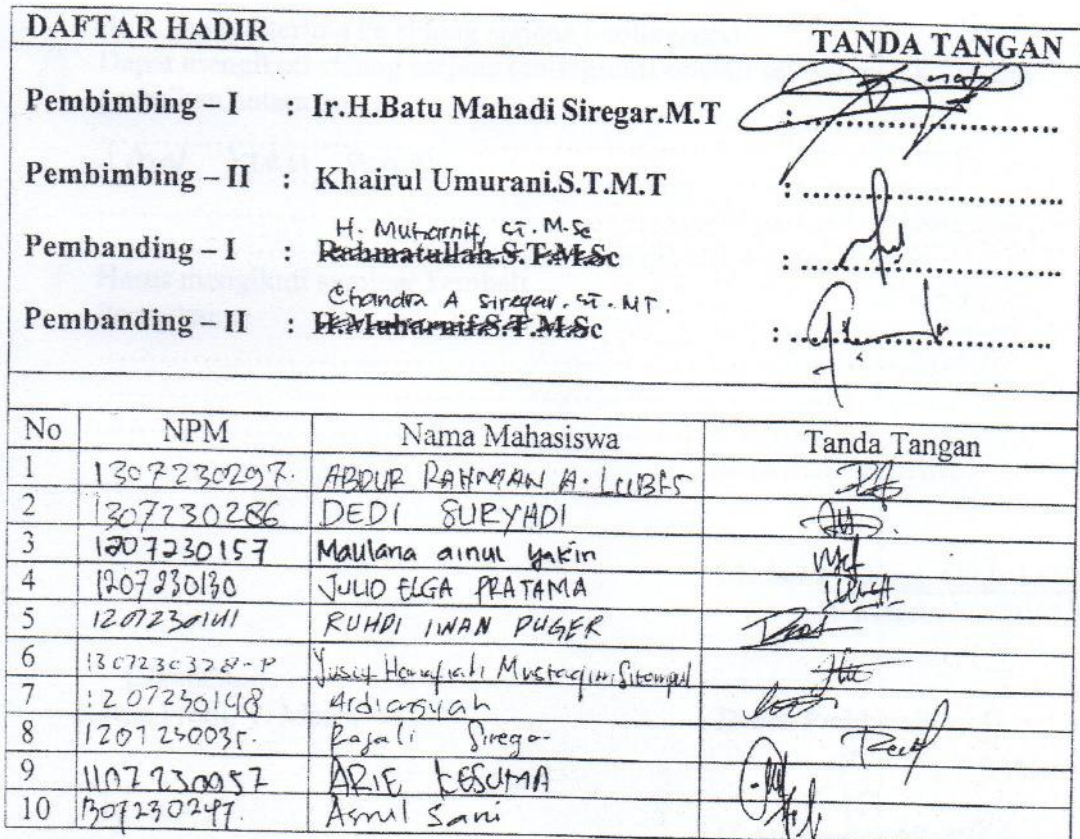 DAFTAR HADIR TANDA TANGAN
Pembimbing – I : Ir.H.Batu Mahadi Siregar.M.T :
Pembimbing – II : Khairul Umurani.S.T.M.T :
H. Muharnif, ST. M.Sc
Pembanding – I : Rahmatullah.S.T.M.Sc :
Chandra A Siregar. ST. MT.
Pembanding – II : H.Muharnif.S.T.M.Sc :
No NPM Nama Mahasiswa Tanda Tangan
1 1307230297. ABDUR RAHMAN A. LUBIS
2 1307230286 DEDI SURYADI
3 1207230157 Maulana ainul yakin
4 1207230130 JULIO ELGA PRATAMA
5 1207230141 RUHDI IWAN PUGER
6 1307230378-P Yusuf Mustaqim Sitompul
7 1207230148 Ardiansyah
8 1207230035. Siregar
9 1107230057 ARIE KESUMA
10 1307230297. Asmil Sani